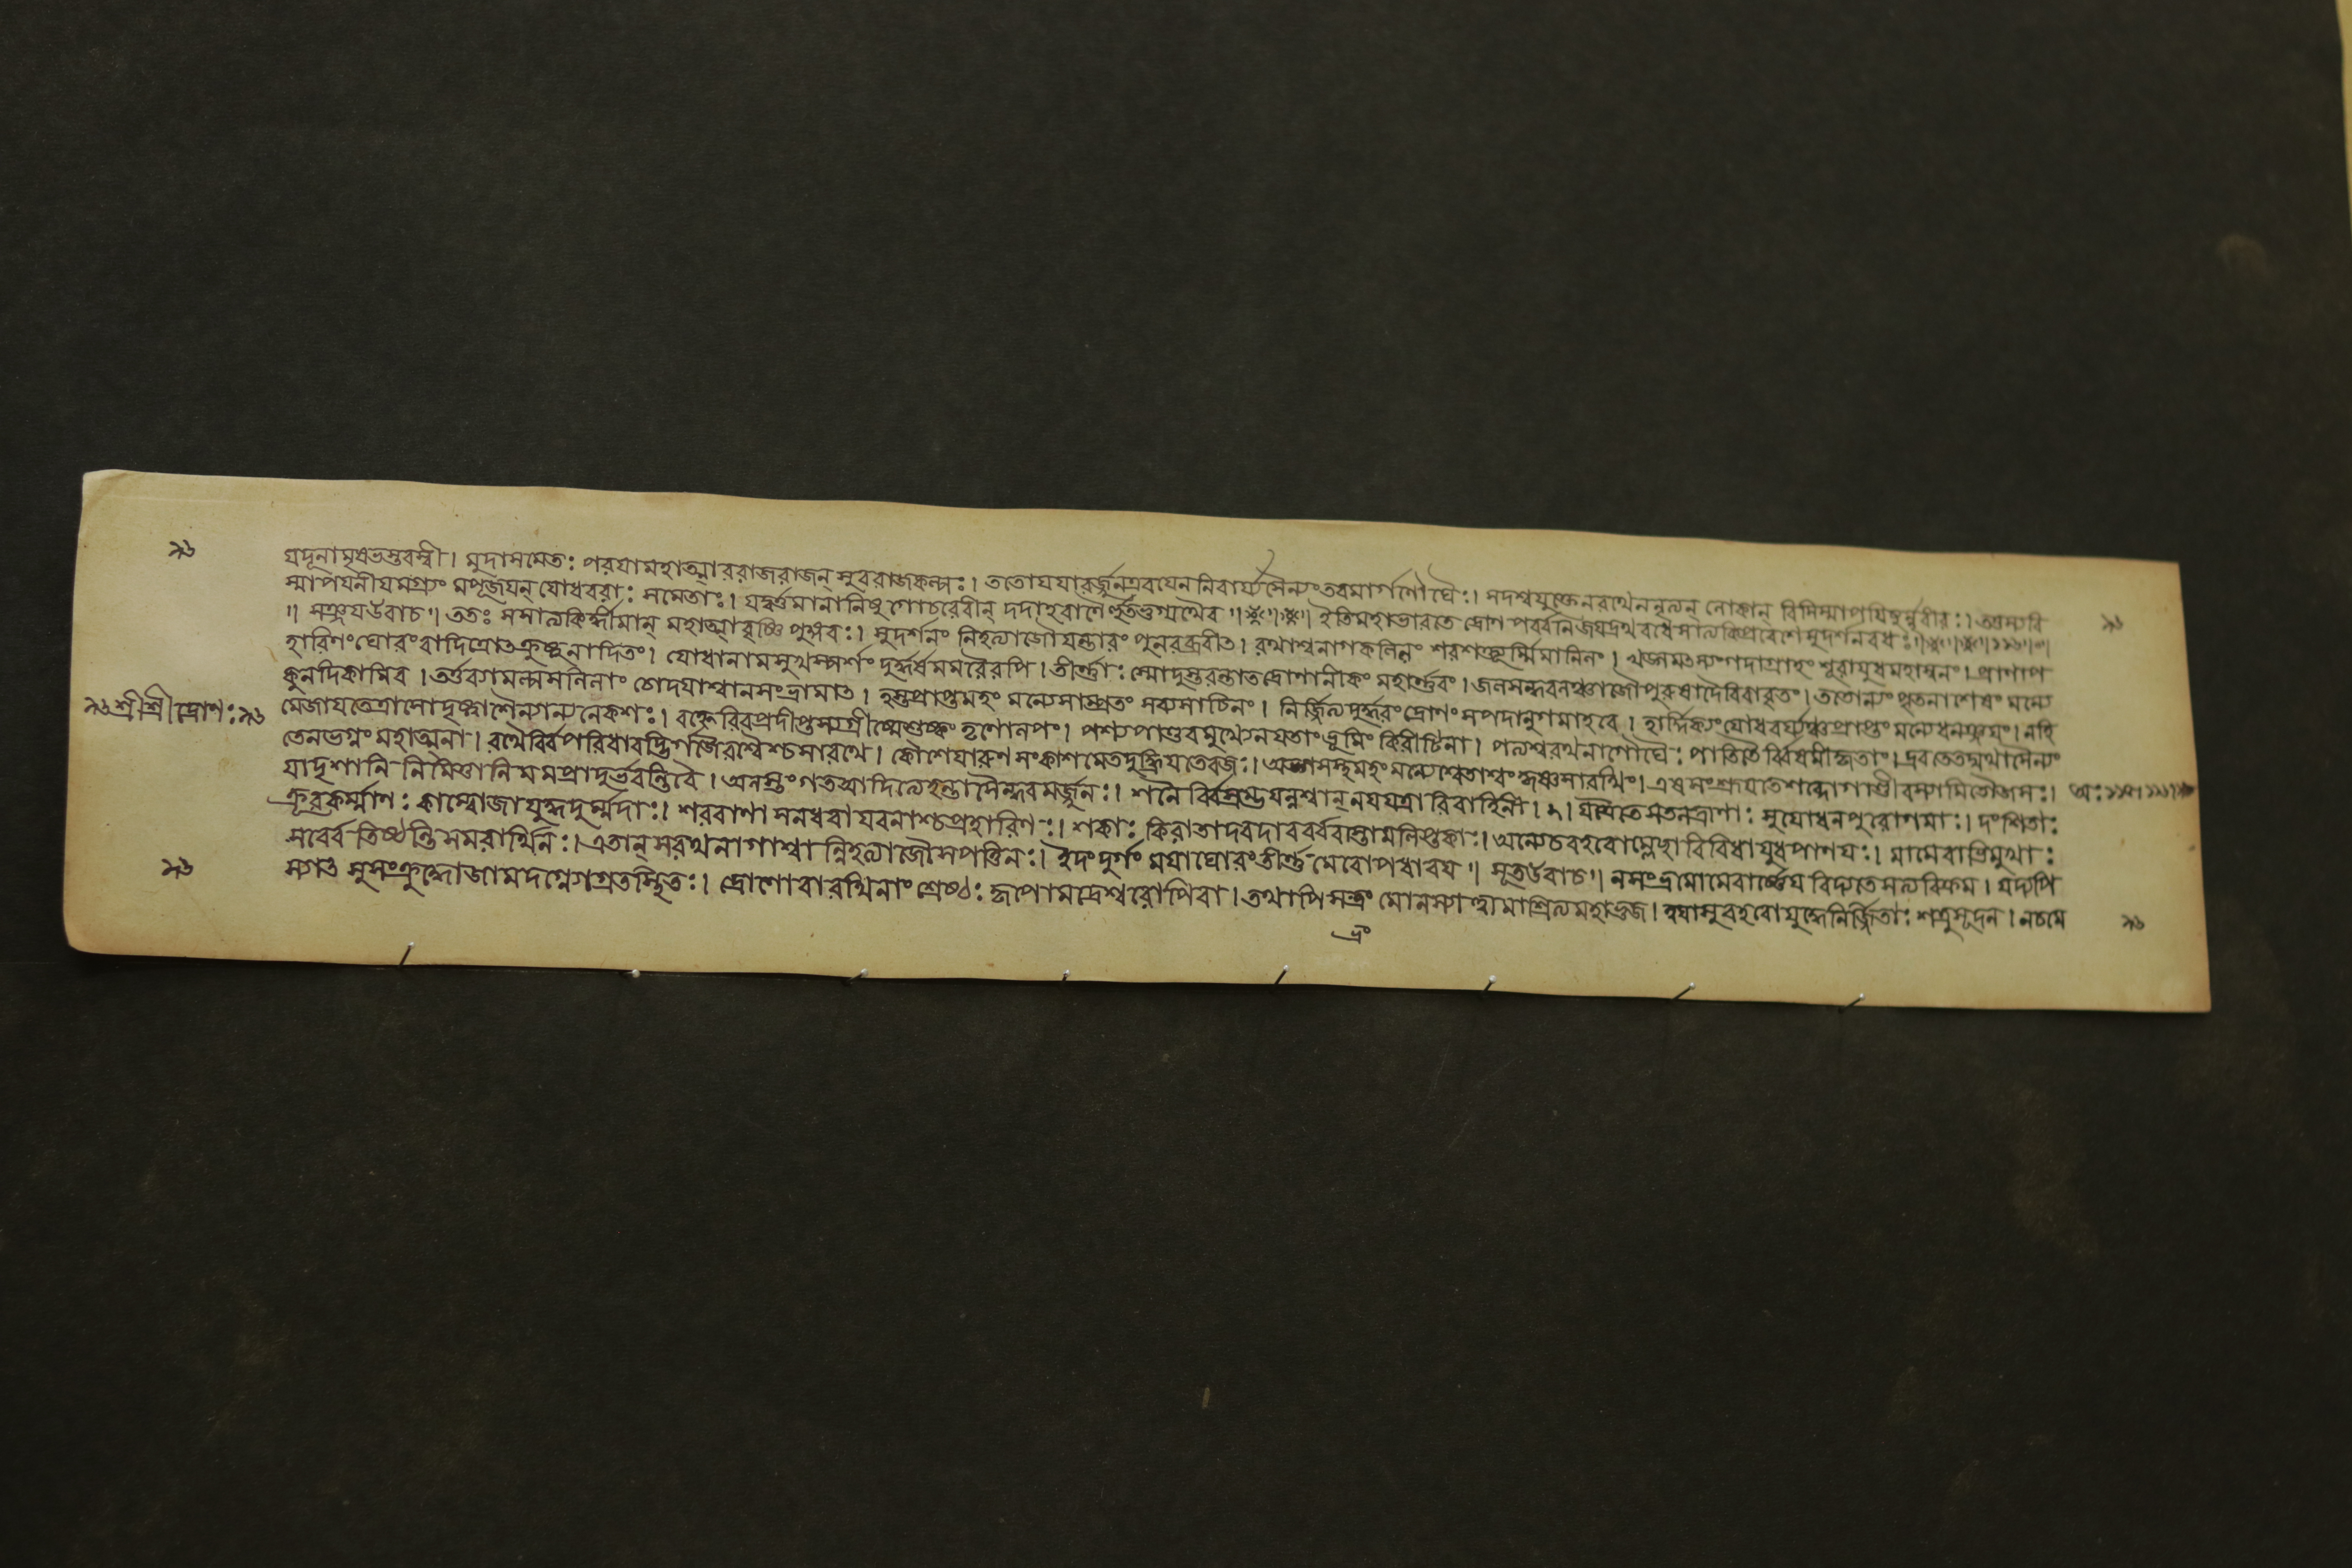 ৯৬
যদূনামৃষভস্তরস্বী। মুদাসমেত: পরযামহাত্মাররাজরাজন্ সুবরাজকল্পঃ। ততোযযাবর্জ্জুনএবযেননিবার্য্যসৈন্যংতবমার্গণৌঘৈঃ। সদশ্বযুক্তেনরথেন
স্মাপযনীযমগ্র্যং মপূজযন্ যোধবরা: সমেতাঃ। যদ্বর্ত্তমানানিষুগোচরেরীন্ দদাহবাণৈর্হুতভুগ্যথৈব॥ ইতিমহাভারতে দ্রোণপর্ব্বনিজযদ্রথবধেসাত্যকিপ্রবেশেসুদর্শনবধঃ॥
॥ সঞ্জযউবাচ॥ ততঃ সসাত্যকির্ধীমান্ মহাত্মাবৃষ্ণিপুঙ্গবঃ। সুদর্শনং নিহত্যাজৌযন্তারং পুনরব্রবীত। রথাশ্বনাগকলিলং শরশক্ত্যূর্ম্মিমালিনং। খড়্গমৎস্যংগদাগ্রাহং শূরাযুধমহাস্বনং। প্রাণাপ
হারিণংঘোরংবাদিত্রোৎক্রুষ্টনাদিতং। যোধানামসুখস্পর্শং দুর্দ্ধর্ষমমরৈরপি। তীর্ণ্ণা: স্মোদুস্তরন্তাতদ্রোণানীকং মহার্ণ্ণবং। জলসন্ধবলঞ্চাজৌপুরুষাদৈরিবাবৃতং। ততোন্যং পৃতনাশেষং মন্যে
কুনদিকামিব। তর্ত্তব্যামল্পসলিলাং চোদযাশ্বানসংভ্রামাত। হস্তপ্রাপ্তমহং মন্যেসাম্প্রতং সব্যসাচিনং। নির্জ্জিত্যদুর্দ্ধরংদ্রোণং সপদানুগমাহবে। হার্দ্দিক্যং যোধবর্য্যঞ্চপ্রাপ্তং মন্যেধনঞ্জযং। নহি
৯৬শ্রীশ্রীদ্রোণ:৯৬ মেজাযতেত্রাসোদৃষ্ট্বাসৈন্যান্যনেকশঃ। বহ্নেরিবপ্রদীপ্তস্যগ্রীষ্মেশুষ্কং তৃণোলপং। পশ্যপাণ্ডবমুখ্যেনযতাংভূমিং কিরীটিনা। পত্যশ্বরথনাগৌঘৈ: পাতিতৈর্ব্বিষমীকৃতাং। দ্রবতেতদ্যথাসৈন্যং
তেনভগ্নং মহাত্মনা। রথৈর্ব্বিপরিধাবদ্ভির্গজৈরশ্বৈশ্চসারথে। কৌশেযারুণ সংকাশমেতদুদ্ধূযতেরজঃ। মন্যেশ্বেতাশ্বংকৃষ্ণসারথিং। এষসংশ্রূযতেশব্দোগাণ্ডীবস্যামিতৌজসঃ।
যাদৃশানি নিমিত্তানি মমপ্রাদুর্ভবন্তিবৈ। অনস্তংগতআদিত্যেহন্তাসৈন্ধবমর্জ্জুনঃ। শনৈর্ব্বিস্রম্ভযন্নশ্বান্ নযযত্রারিবাহিনী। যত্রৈতেসতনুত্রাণা: সুযোধনপুরোগমাঃ। দংশিতা:
ক্রূরকর্ম্মাণ: কাম্বোজাযুদ্ধদুর্ম্মদাঃ। শরবাণাসনধরাযবনাশ্চপ্রহারিণঃ। শকা: কিরাতাদরদাবর্ব্বরাস্তাম্রলিপ্তকাঃ। অন্যেচবহবোম্লেচ্ছাবিবিধাযুধপাণযঃ। মামেবাভিমুখা:
সর্ব্বেতিষ্ঠন্তিসমরার্থিনঃ। এতান্ সরথনাগাশ্বান্নিহত্যাজৌসপত্তিনঃ। ইদংদুর্গং মযাঘোরংতীর্ণ্ণমেবোপধারয॥ সূতউবাচ॥ নসংভ্রমোমেবার্ষ্ণেযবিদ্যতেসত্যবিক্রম। যদ্যপি
স্যাৎ সুসংক্রুদ্ধোজামদগ্ন্যোগ্রতস্থিতঃ। দ্রোণোবারথিনাং শ্রেষ্ঠ: কৃপোমদ্রেশ্বরোপিবা। তথাপিসম্ভ্রমোনস্যাত্ত্বামাশ্রিত্যমহাভুজ। ত্বযাসুবহবোযুদ্ধেনির্জ্জিতা: শত্রুসূদন। নচমে
৯৬
৯৬